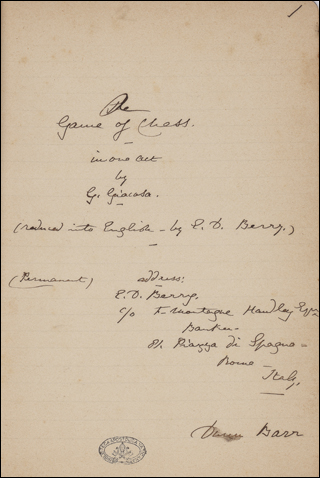 1
The
Game of Chess.
in one act
by
G. Giacosa.
(reduced into English - by E. D. Berry.)
(Permanent) address:
E. D. Berry.
c/o F. Montague Handley Esqre
Banker
81. Piazza di Spagna -
Rome -
Italy.
Barr